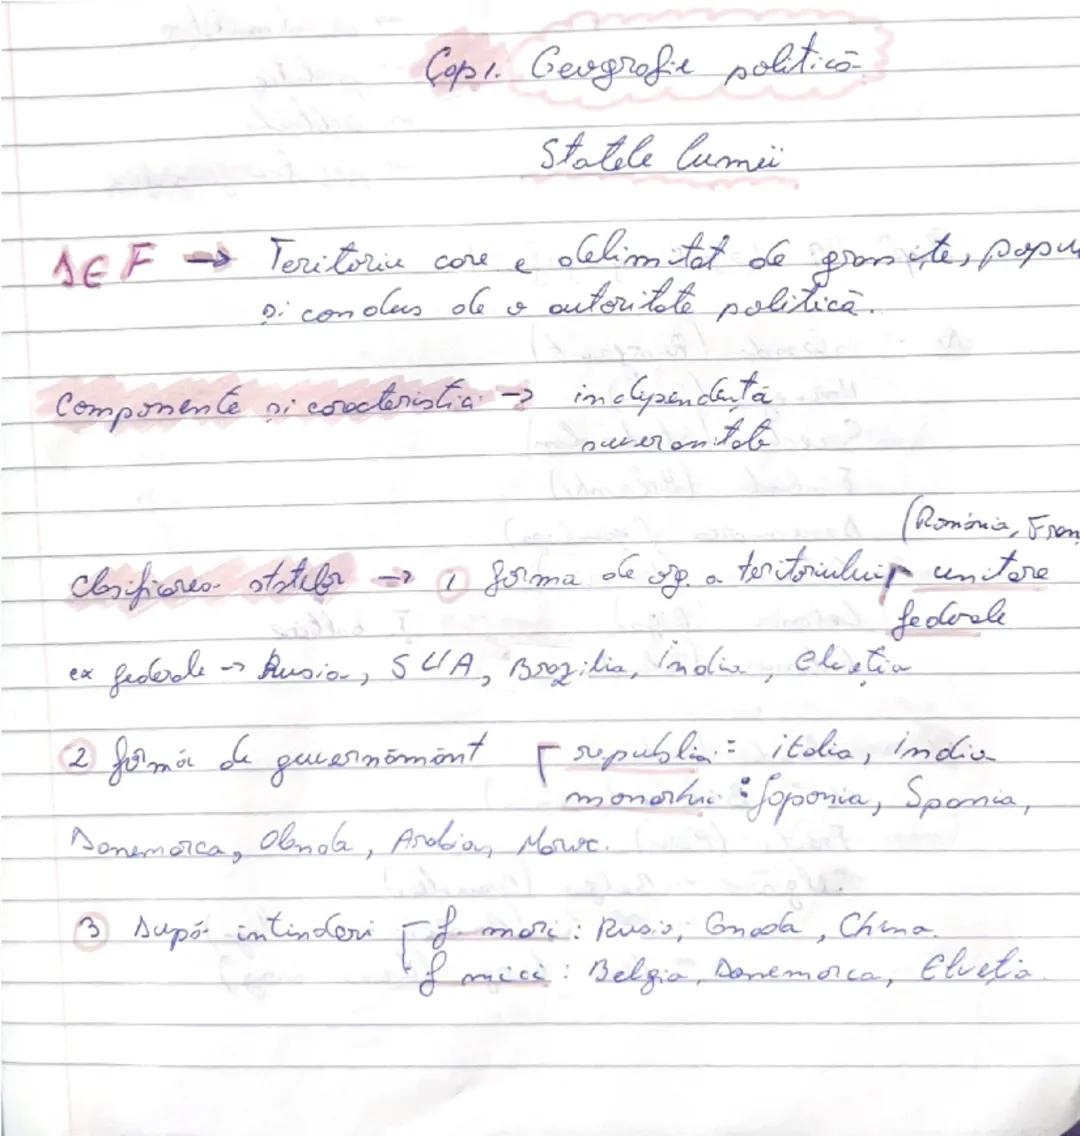 Cap 1. Geografie politică
Statele lumii
DEF → Teritoriu care e delimitat de granițe, popu
și condus de o autoritate politică.
Componente și caracteristici → independentă
suveranitate
(România, Fran
Clasificarea statelor → 1 forma de org. a teritoriului unitare
federale
ex federale → Rusia, SUA, Brazilia, India, Elveția
2 formă de guvernământ republici = italia, India
monarhii : Japonia, Spania,
Danemarca, Olanda, Arabia, Maroc.
3 După întinderi f. mari : Rusia, Canada, China.
f mici : Belgia, Danemarca, Elveția